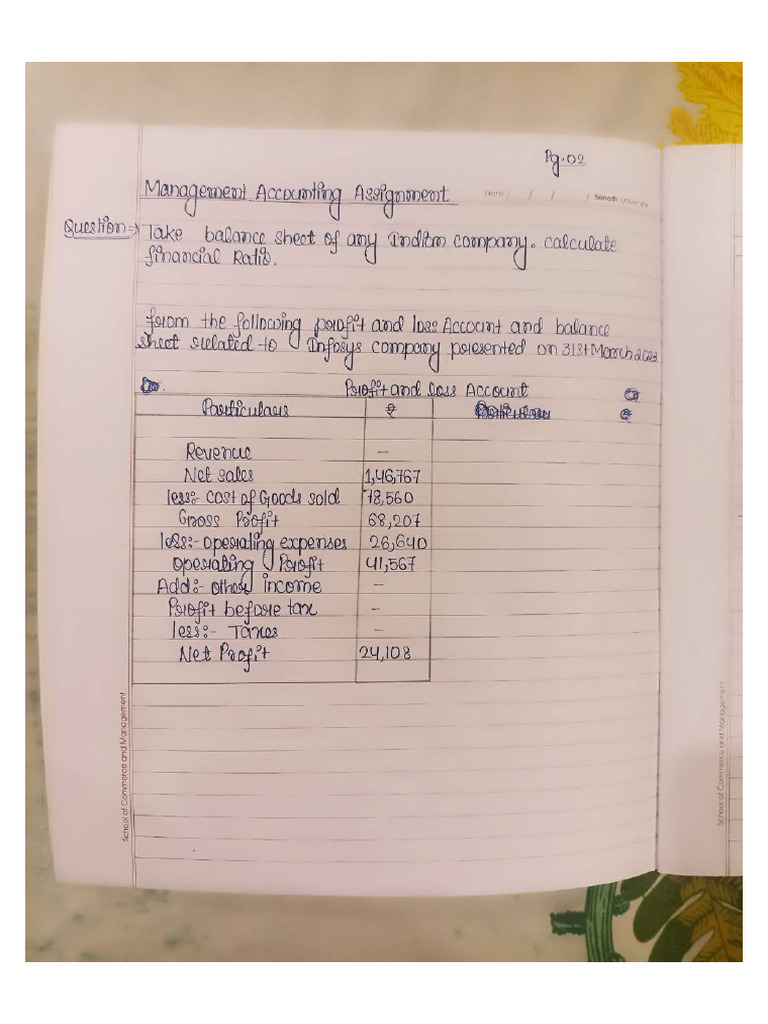 Pg.02
Management Accounting Assignment
Date / / / / Srinath University
Question=> Take balance sheet of any Indian company. calculate
financial Ratio.
from the following profit and loss Account and balance
sheet related to Infosys company presented on 31st March 2023
Profit and Loss Account
Particulars ₹
Revenue –
Net sales 1,46,767
less:- cost of Goods sold 78,560
Gross Profit 68,207
less:- operating expenses 26,640
operating Profit 41,567
Add:- other income –
Profit before tax –
less:- Taxes –
Net Profit 24,108
School of Commerce and Management
School of Commerce and Management